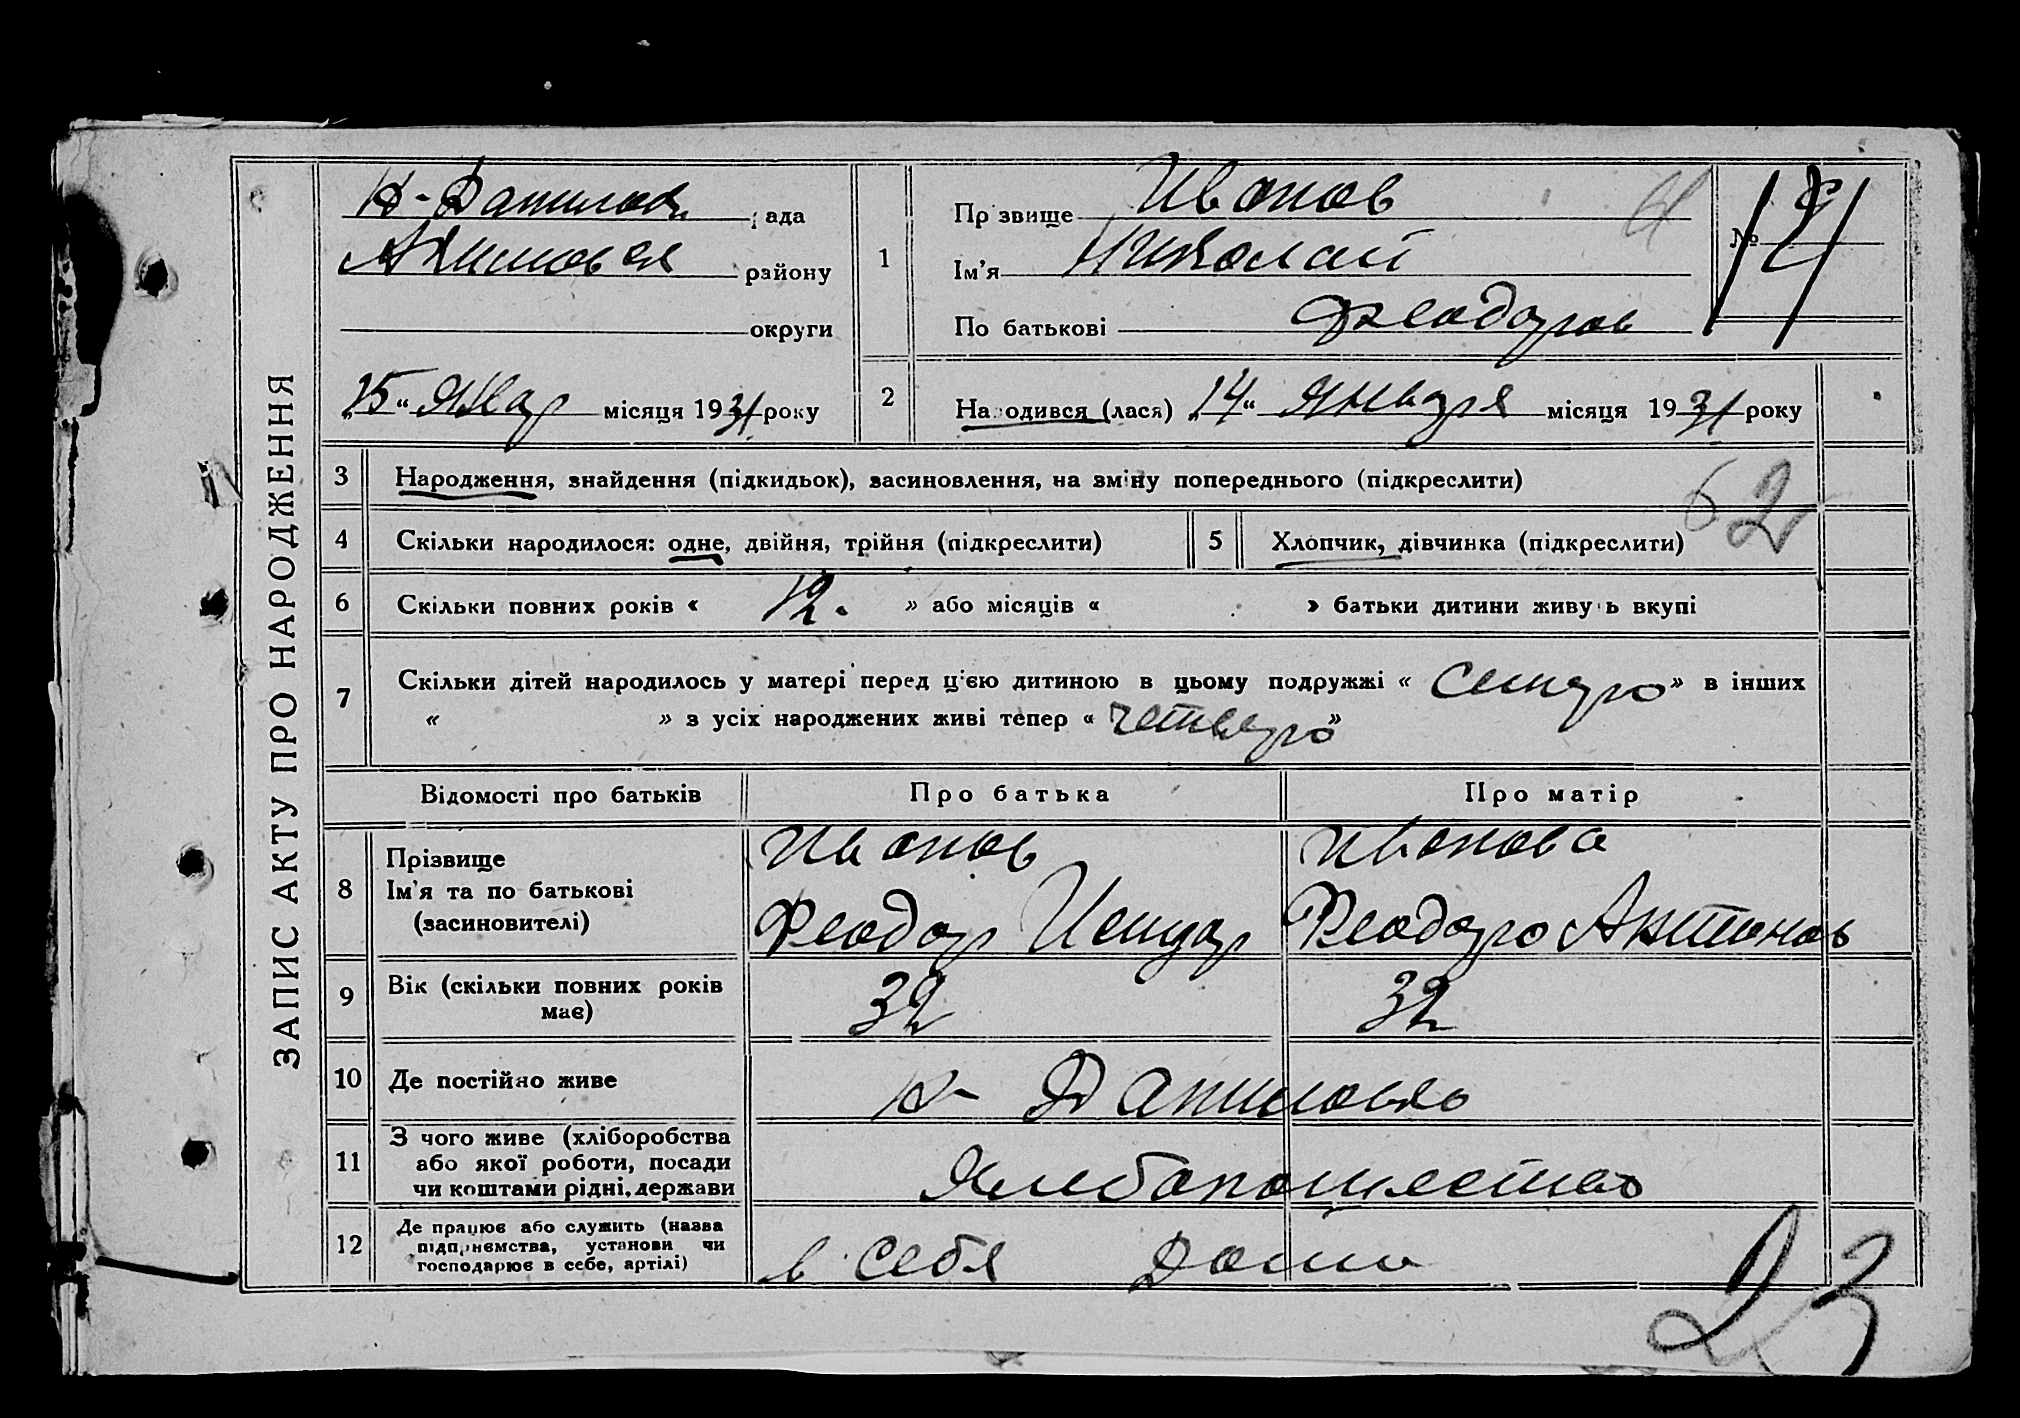 ЗАПИС АКТУ ПРО НАРОДЖЕННЯ
рада
району
округи
„15“ Январ місяця 1931 року
1
Прізвище Иванов
Ім'я Николай
По батькові Феодоров
№
2
Народився (лася) „14“ Января місяця 1931 року
3 Народження, знайдення (підкидьок), засиновлення, на зміну попереднього (підкреслити)
62
4 Скільки народилося: одне, двійня, трійня (підкреслити)
5 Хлопчик, дівчинка (підкреслити)
6 Скільки повних років « 12. » або місяців « » батьки дитини живуть вкупі
7 Скільки дітей народилось у матері перед цією дитиною в цьому подружжі « семеро » в інших
« » з усіх народжених живі тепер « четверо »
Відомості про батьків Про батька Про матір
8 Прізвище
Ім'я та по батькові
(засиновителі)
Иванов
Феодор
Иванова
Феодора Антонов
9 Вік (скільки повних років
має)
32 32
10 Де постійно живе
К- Даниловка
11 З чого живе (хліборобства
або якої роботи, посади
чи коштами рідні, держави
12 Де працює або служить (назва
підприємства, установи чи
господарює в себе, артілі)
в себя Дома
23